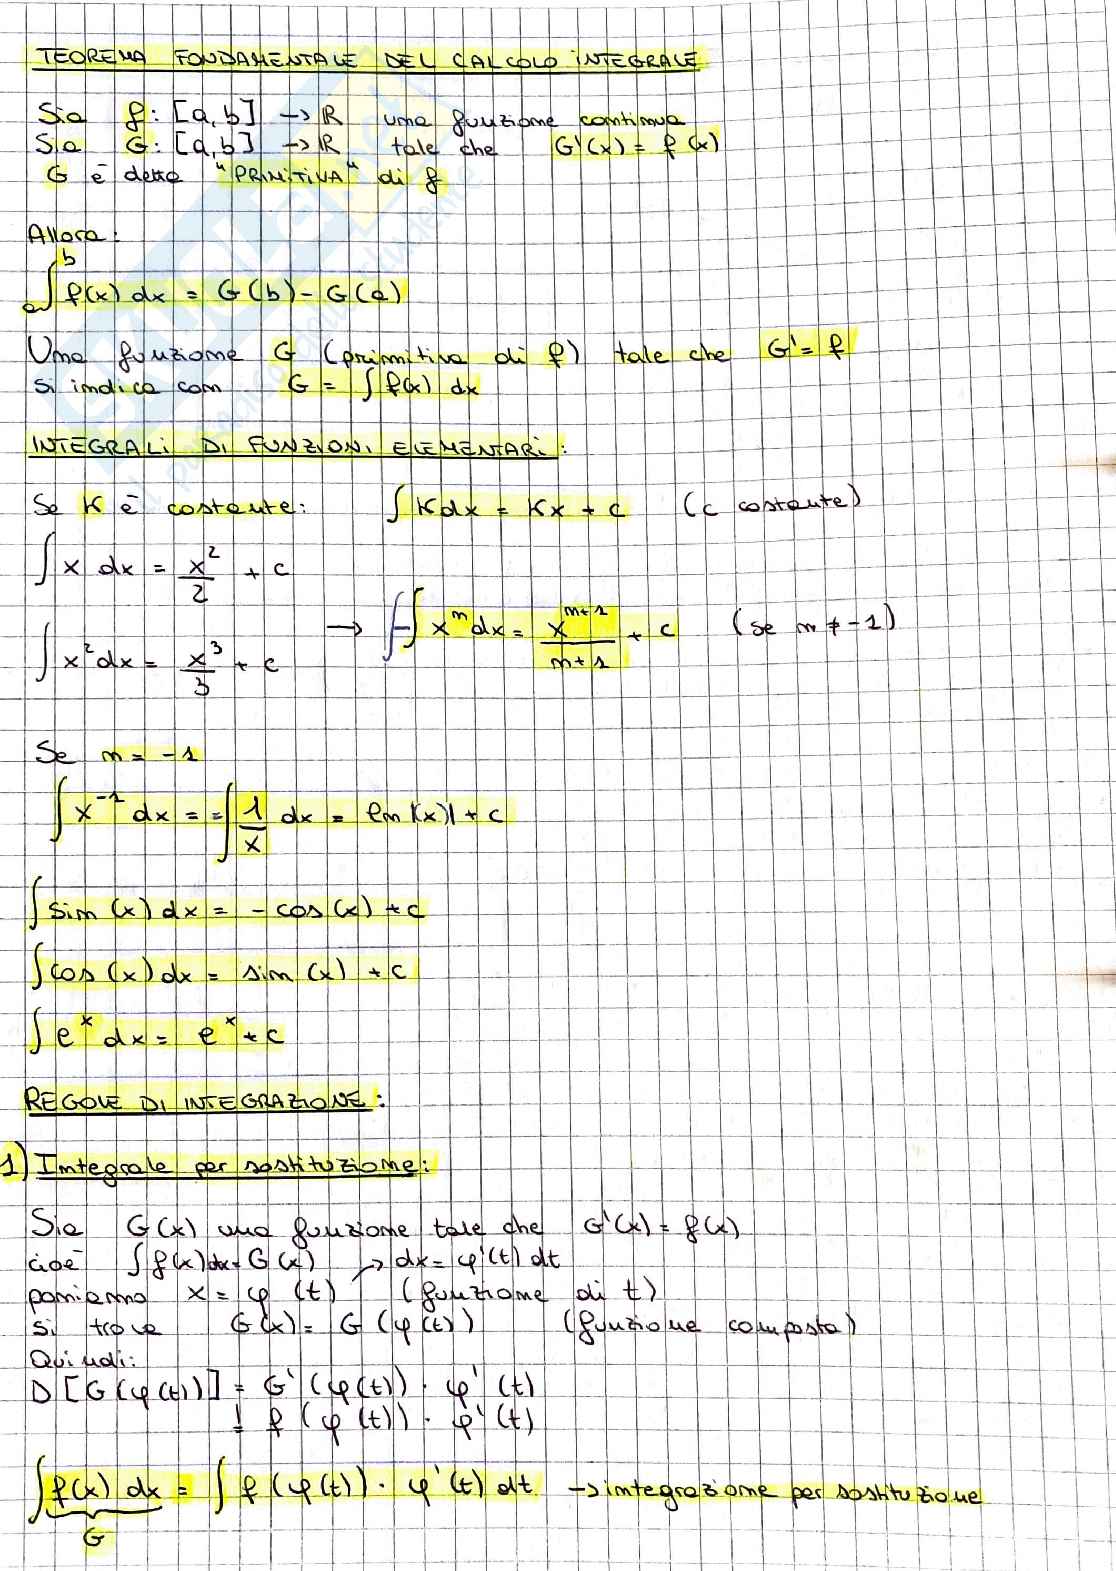 TEOREMA FONDAMENTALE DEL CALCOLO INTEGRALE
Sia f: [a,b] → ℝ una funzione continua
Sia G: [a,b] → ℝ tale che G'(x) = f(x)
G è detta "PRIMITIVA" di f
Allora:
∫ₐᵇ f(x) dx = G(b) - G(a)
Una funzione G (primitiva di f) tale che G' = f
si indica con G = ∫ f(x) dx
INTEGRALI DI FUNZIONI ELEMENTARI:
Se K è costante: ∫ K dx = Kx + c (c costante)
∫ x dx = x²/2 + c
→ ∫ xⁿ dx = xⁿ⁺¹/(n+1) + c (se n ≠ -1)
∫ x² dx = x³/3 + c
Se n = -1
∫ x⁻¹ dx = = ∫ 1/x dx = ln |(x)| + c
∫ sin (x) dx = - cos (x) + c
∫ cos (x) dx = sin (x) + c
∫ eˣ dx = eˣ + c
REGOLE DI INTEGRAZIONE:
1) Integrale per sostituzione:
Sia G(x) una funzione tale che G'(x) = f(x)
cioè ∫ f(x) dx = G(x) → dx = φ'(t) dt
poniamo x = φ (t) (funzione di t)
si trova G(x) = G (φ(t)) (funzione composta)
Quindi:
D [G (φ(t))] = G' (φ(t)) · φ' (t)
= f (φ(t)) · φ'(t)
∫ f(x) dx = ∫ f (φ(t)) · φ'(t) dt → integrazione per sostituzione
G